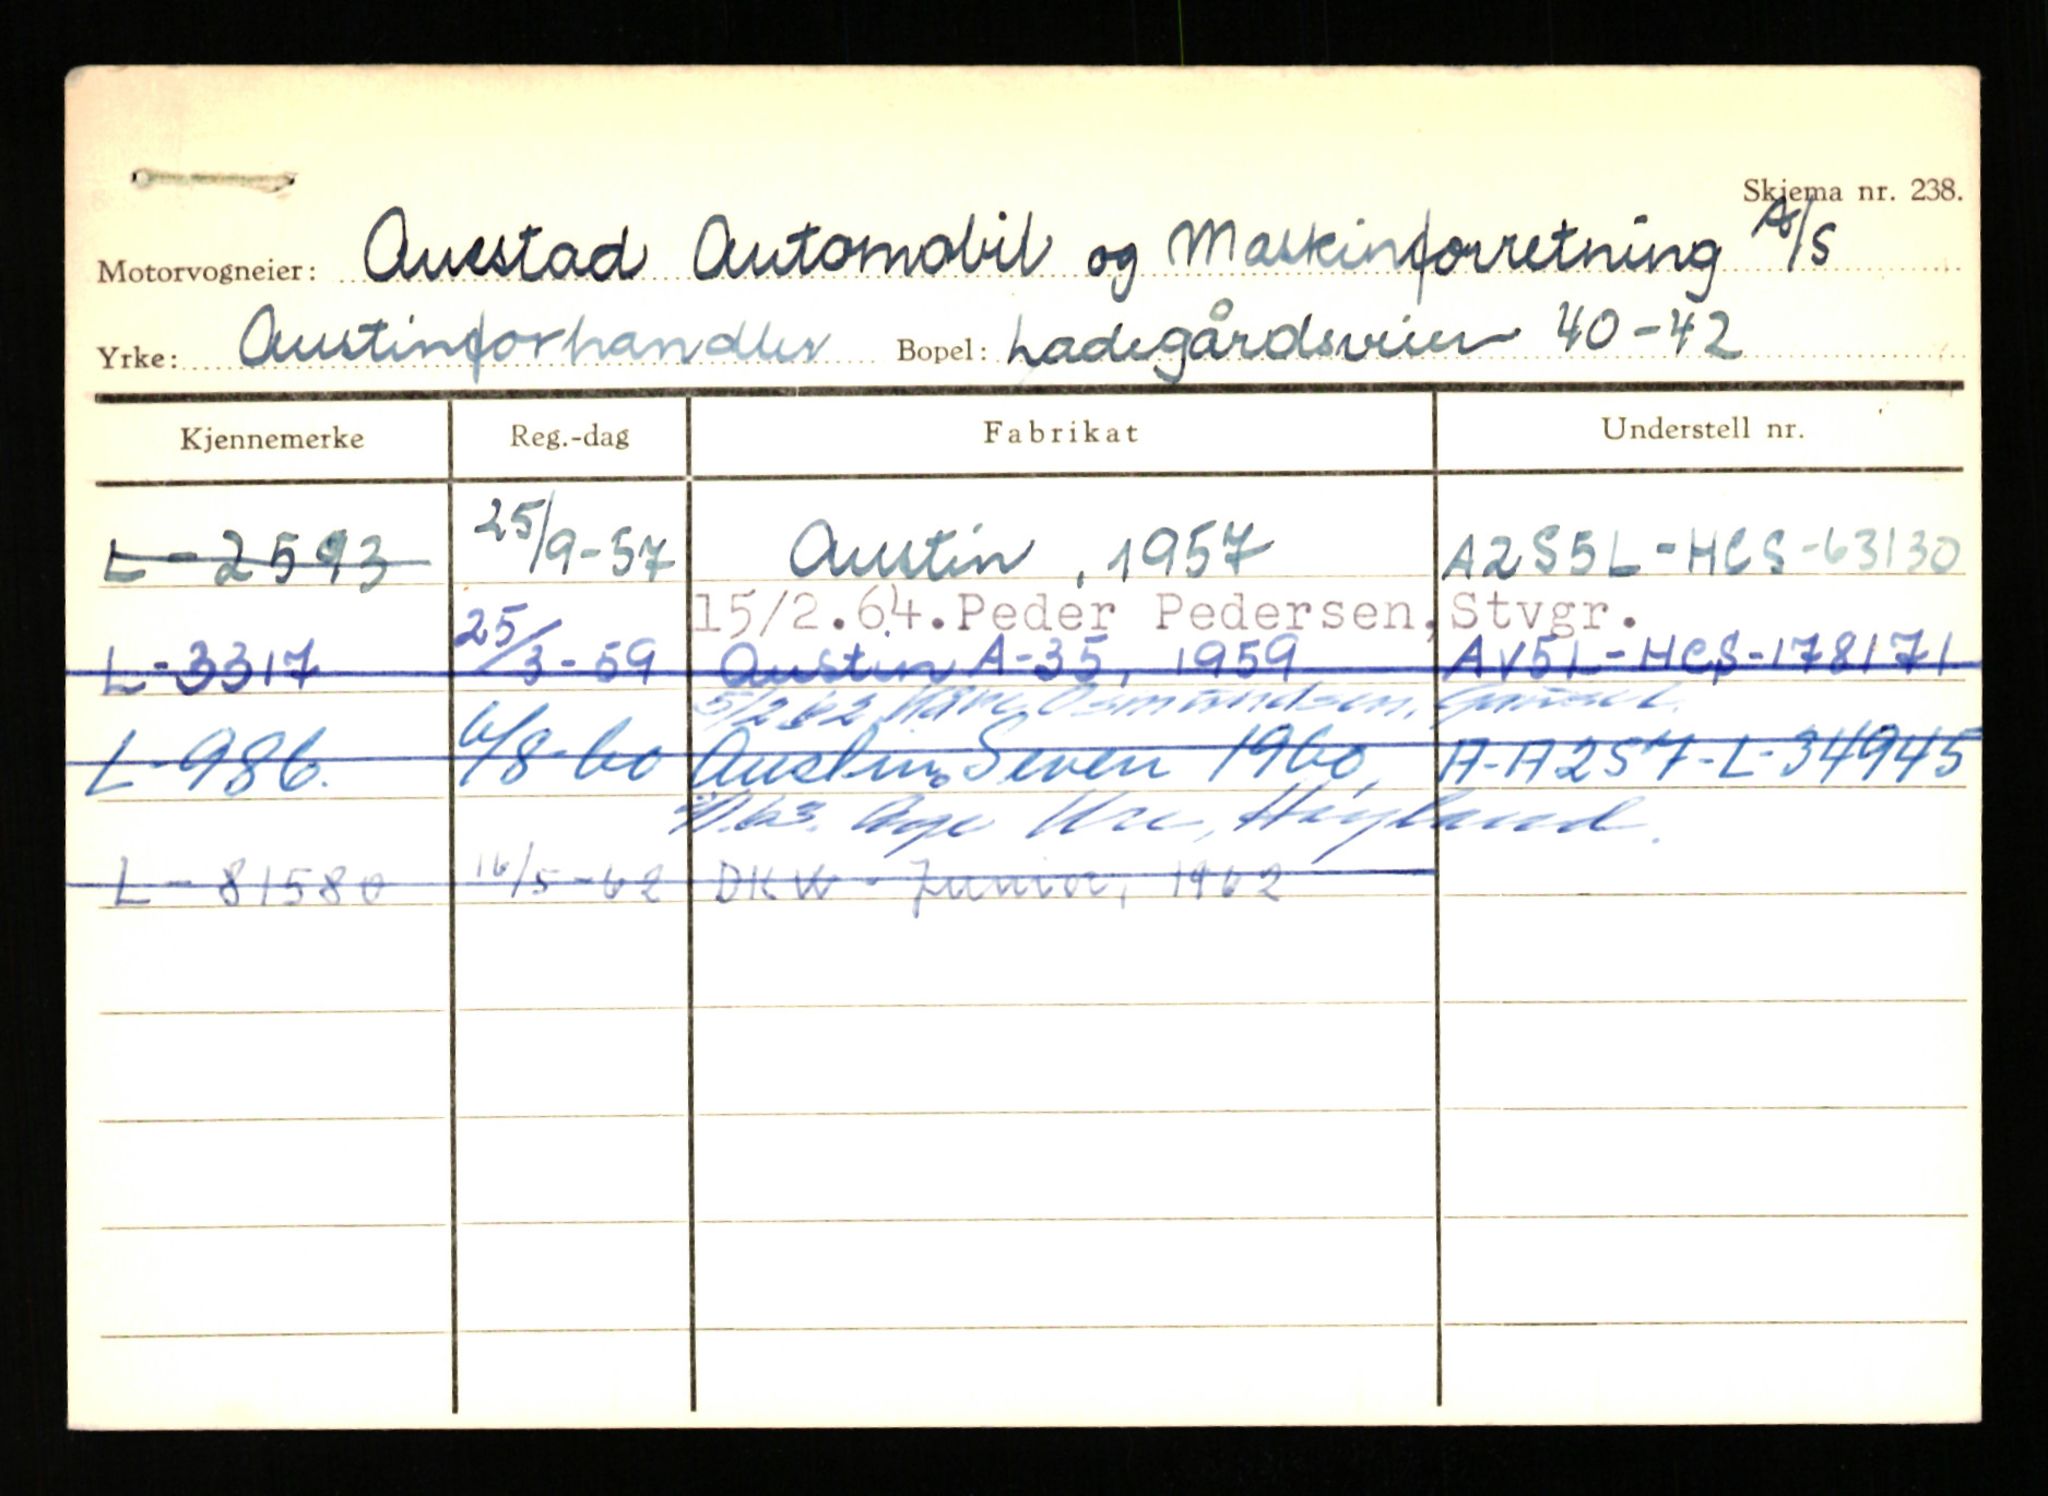 Skjema nr. 238.
Motorvogneier: Auestad Automobil og Maskinforretning A/S
Yrke: Austinforhandler Bopel: Ladegårdsveien 40-42
Kjennemerke Reg.-dag Fabrikat Understell nr.
L-2593 25/9-57 Austin, 1957 A2S5L-HCS-63130
15/2.64. Peder Pedersen, Stvgr.
L-3317 25/3-59 Austin A-35, 1959 AV5L-HCS-178171
5/2 62 Kåre Osmundsen, Gausel.
L-986. 6/8-60 Austin Seven 1960, A-A2S7-L-34945
Åge Ure, Høyland.
L-81580 16/5-62 DKW-Junior, 1962